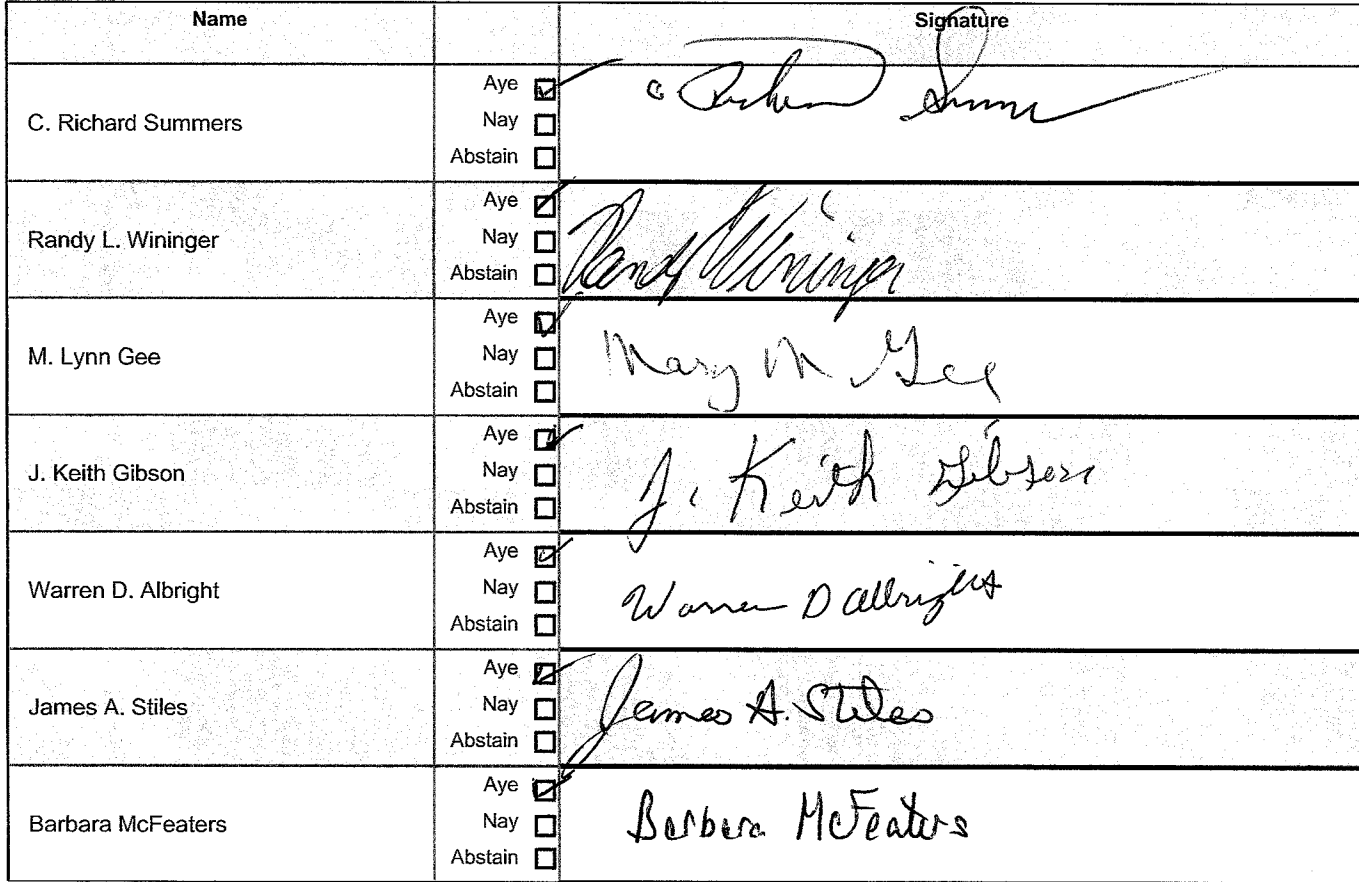 Name Signature
C. Richard Summers
Aye
Nay
Abstain
C Richard Summe
Randy L. Wininger
Aye
Nay
Abstain
Randy Wininger
M. Lynn Gee
Aye
Nay
Abstain
Mary M Gee
J. Keith Gibson
Aye
Nay
Abstain
J. Keith Gibson
Warren D. Albright
Aye
Nay
Abstain
Warren D Albright
James A. Stiles
Aye
Nay
Abstain
James A. Stiles
Barbara McFeaters
Aye
Nay
Abstain
Barbara McFeaters